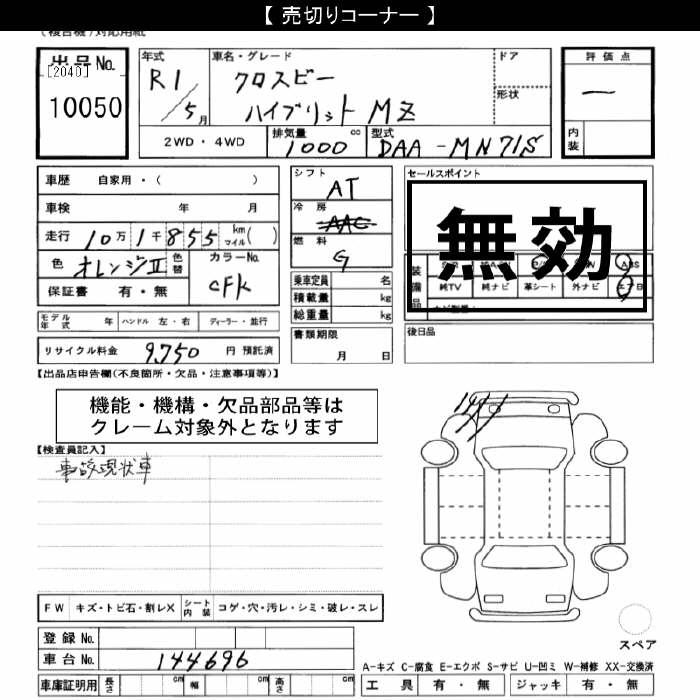 【 売切りコーナー 】
(複合機)対応用紙
出品 No.
[2040]
10050
年式
R1/5月
車名・グレード
クロスビー
ハイブリット MZ
ドア
形状
評価点
一
内装
2WD・4WD
排気量 1000 cc
型式 DAA-MN71S
車歴 自家用・( )
車検 年 月
走行 10万1千855 km マイル( )
色 オレンジII 色替
カラーNo. CFK
保証書 有・無
モデル年式 年 ハンドル 左・右 ディーラー・並行
リサイクル料金 9,750 円 預託済
シフト AT
冷房 AAC
燃料 G
乗車定員 名
積載量 kg
総重量 kg
書類期限
月 日
セールスポイント
無効
装備品
ABS
純TV 純ナビ 革シート 外ナビ エアB
後日品
【出品店申告欄(不良箇所・欠品・注意事項等)】
機能・機構・欠品部品等は
クレーム対象外となります
【検査員記入】
事故現状車
FW キズ・トビ石・割レX シート内装 コゲ・穴・汚レ・シミ・破レ・スレ
登録 No.
車台 No. 144696
車庫証明用 長さ cm 幅 cm 高さ cm
スペア
A-キズ C-腐食 E-エクボ S-サビ U-凹ミ W-補修 XX-交換済
工具 有・無 ジャッキ 有・無